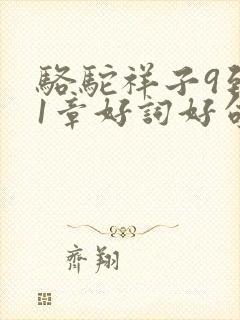 駱駝祥子9到
1章好詞好句
齊翔